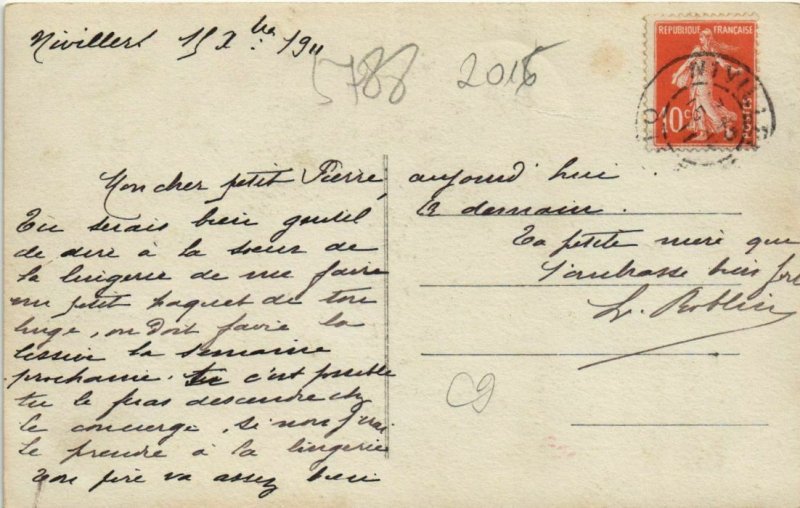 Nivillers 15 Xbre 1911
5788 2015
REPUBLIQUE FRANÇAISE
10c POSTES
NIVILLERS
Mon cher petit Pierre,
Tu serais bien gentil
de dire à la sœur de
la lingerie de me faire
un petit paquet de ton
linge, on doit faire la
lessive la semaine
prochaine. Si c'est possible
tu le feras descendre chez
le concierge, si non j'irai
le prendre à la lingerie
Ton père va assez bien
aujourd'hui
à demain.
Ta petite mère qui
t'embrasse bien fort
L. Roblin
C9